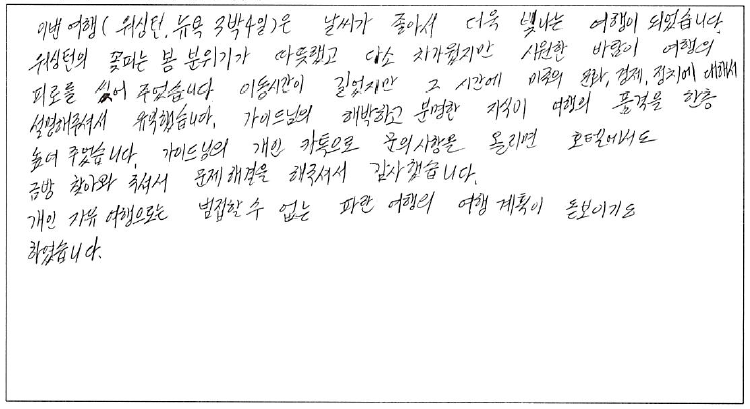 이번 여행( 워싱턴, 뉴욕 3박4일)은 날씨가 좋아서 더욱 빛나는 여행이 되었습니다.
워싱턴의 꽃피는 봄 분위기가 따뜻했고 다소 차가웠지만 시원한 바람이 여행의
피로를 씻어 주었습니다 이동시간이 길었지만 그 시간에 미국의 문화, 경제, 정치에 대해서
설명해주셔서 유익했습니다. 가이드님의 해박하고 분명한 지식이 여행의 품격을 한층
높여 주었습니다. 가이드님의 개인 카톡으로 문의사항을 올리면 호텔에서도
금방 찾아와 주셔서 문제해결을 해주셔서 감사했습니다.
개인 자유 여행으로는 범접할 수 없는 파란 여행의 여행 계획이 돋보이기도
하였습니다.